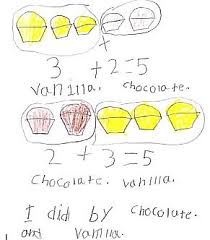 +
3 + 2 = 5
vanilla. chocolate.
+
2 + 3 = 5
chocolate. vanilla.
I did by chocolate.
and vanilla.